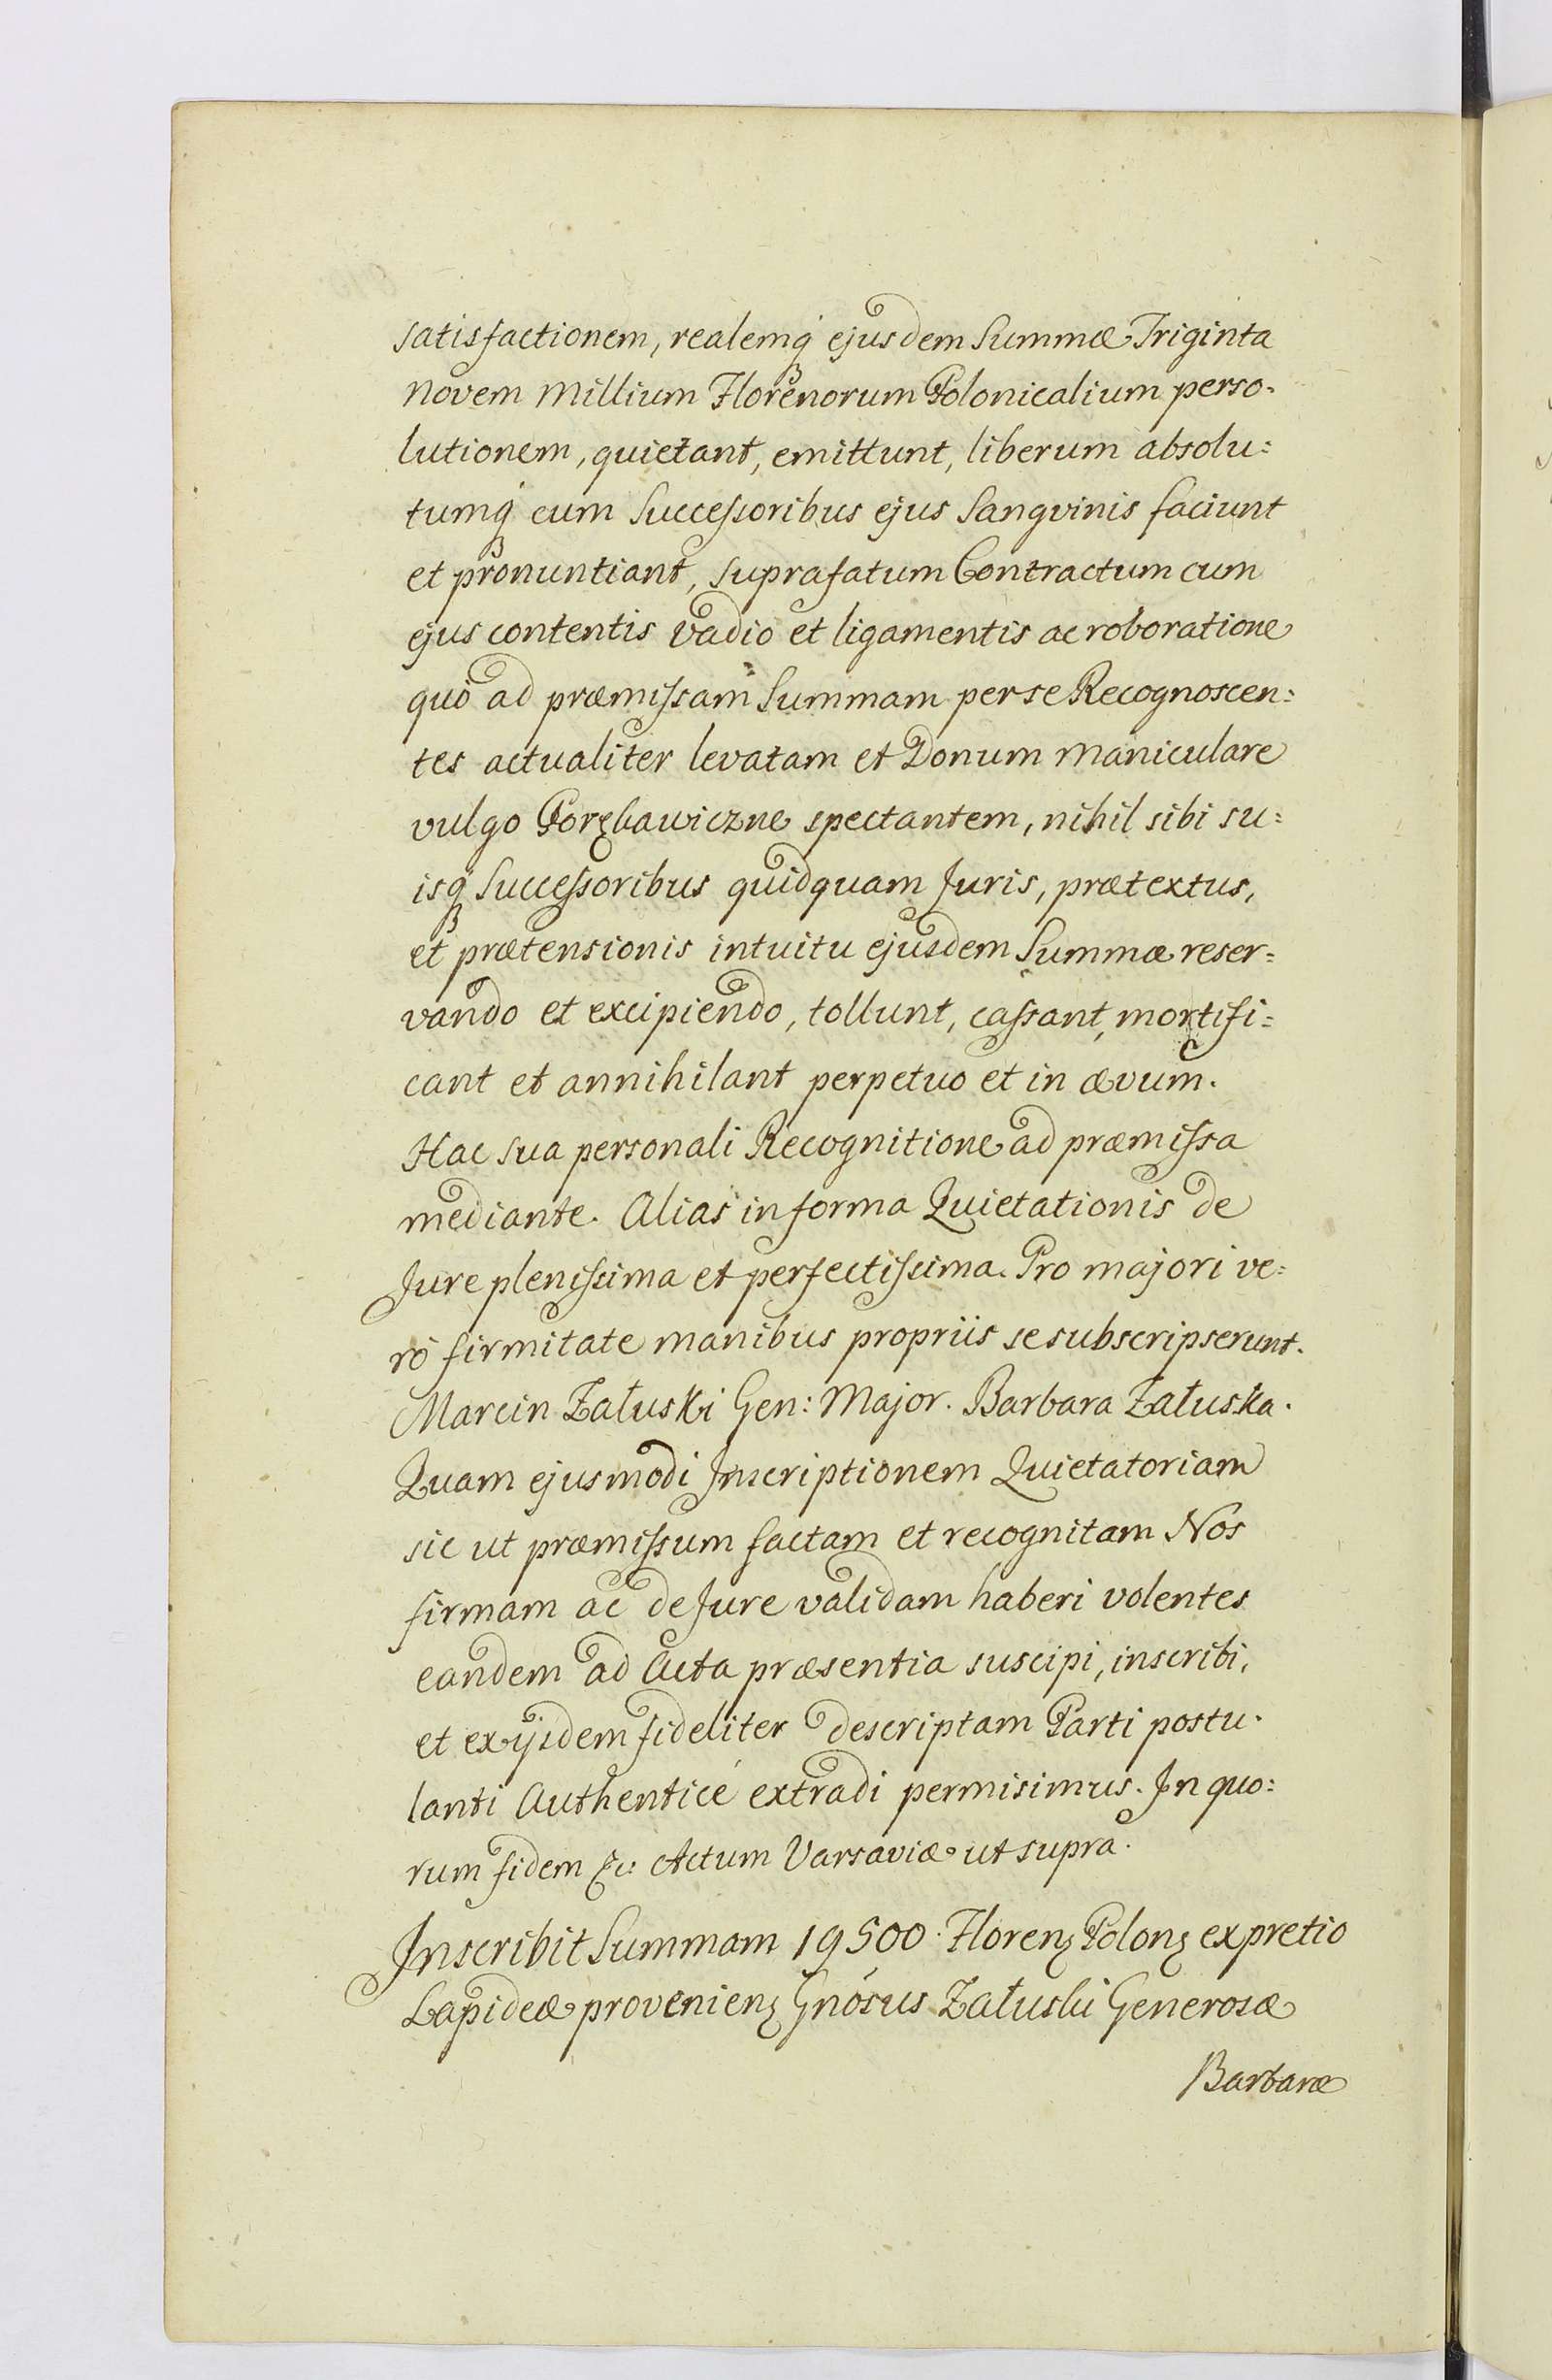 satisfactionem, realemq́ ejusdem Summæ Triginta
novem millium Florenorum Polonicalium perso-
lutionem, quietant, emittunt, liberum absolu:
tumq́ cum Successoribus ejus Sangvinis faciunt
et pronuntiant, suprafatum Contractum cum
ejus contentis vadio et ligamentis ac roboratione
quò ad præmissam Summam per se Recognoscen:
tes actualiter levatam et Donum maniculare
vulgo Porębawiczne spectantem, nihil sibi su:
isq́ Successoribus quidquam Juris, prætextus,
et prætensionis intuitu ejusdem Summæ reser:
vando et excipiendo, tollunt, cassant, mortifi:
cant et annihilant perpetuo et in ævum.
Hac sua personali Recognitione ad præmissa
mediante. Alias in forma Quietationis de
Jure plenissima et perfectissima. Pro majori ve:
rò firmitate manibus propriis se subscripserunt.
Marcin Załuski Gen: Major. Barbara Załuska.
Quam ejusmodi Inscriptionem Quietatoriam
sic ut præmissum factam et recognitam Nos
firmam ac de Jure validam haberi volentes
eandem ad Acta præsentia suscipi, inscribi,
et ex ijsdem fideliter descriptam Parti postu-
lanti Authenticé extradi permisimus. In quo:
rum fidem &c: Actum Varsaviæ ut supra.
Inscribit Summam 19500. Florenʒ Polonʒ ex pretio
Lapideæ provenienʒ Gnósus Załuski Generosæ
Barbaræ